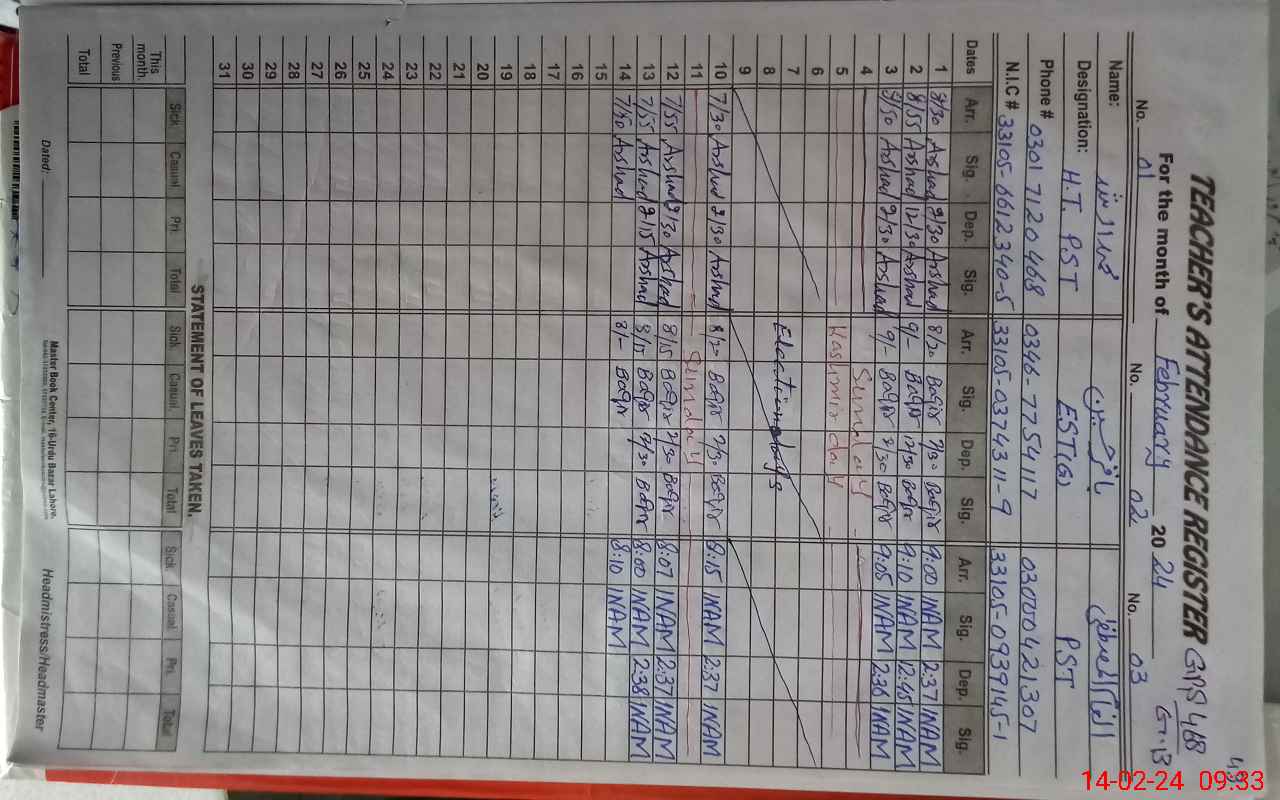 49
TEACHER'S ATTENDANCE REGISTER GPS 468
For the month of February 2024 G.B
No. 01 No. 02 No. 03
Name:
Designation: H.T. PST EST(G) PST
Phone # 0301 7120468 0346-7754117 03000421307
N.I.C # 33105-6612340-5 33105-0374311-9 33105-0939145-1
Dates Arr. Sig. Dep. Sig. Arr. Sig. Dep. Sig. Arr. Sig. Dep. Sig.
1 8/30 Arshad 2/30 Arshad 8/20 Baqir 2/30 Baqir 9:00 INAM 2:37 INAM
2 8/55 Arshad 12/30 Arshad 9/- Baqir 12/30 Baqir 9:10 INAM 12:45 INAM
3 8/50 Arshad 2/30 Arshad 9/- Baqir 2/30 Baqir 9:05 INAM 2:36 INAM
4 Sunday
5 Kashmir day
6
7 Election days
8
9
10 7/30 Arshad 2/30 Arshad 8/20 Baqir 2/30 Baqir 8:15 INAM 2:37 INAM
11 Sunday
12 7/55 Arshad 2/30 Arshad 8/15 Baqir 2/30 Baqir 8:07 INAM 2:37 INAM
13 7/55 Arshad 2/15 Arshad 8/15 Baqir 2/30 Baqir 8:00 INAM 2:38 INAM
14 7/50 Arshad 8/- Baqir 8:10 INAM
15
16
17
18
19
20
21
22
23
24
25
26
27
28
29
30
31
STATEMENT OF LEAVES TAKEN.
Sick Casual Pri. Total Sick. Casual. Pri. Total Sick Casual Pri. Total
This month
Previous
Total
Dated: Master Book Center, 16-Urdu Bazar Lahore. Headmistress/Headmaster
14-02-24 09:33